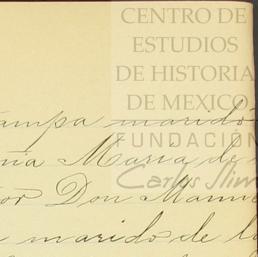 CENTRO DE
ESTUDIOS
DE HISTORIA
DE MEXICO
FUNDACIÓN
Carlos Slim
ampa marido
María de
Don Manue
marido de la